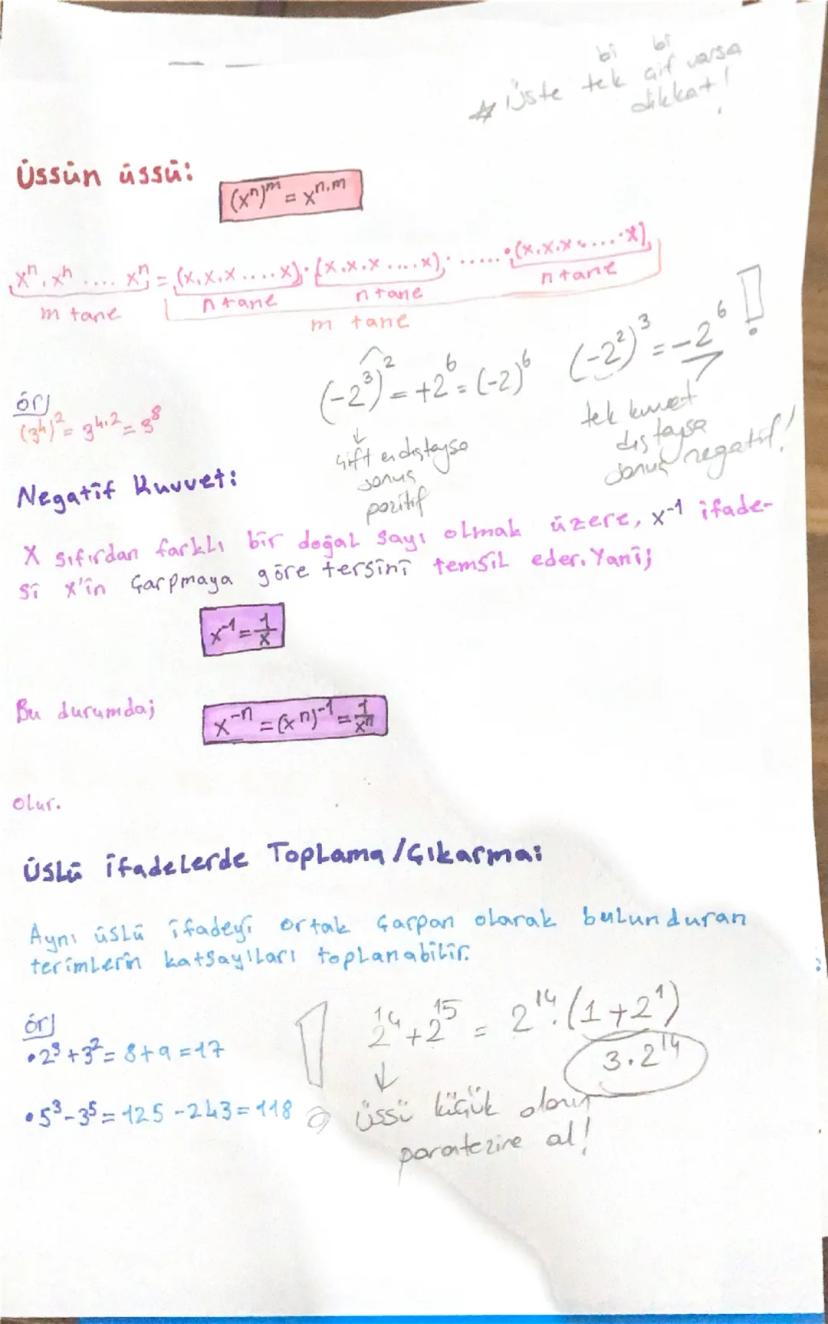 bi bi
* Üste tek çift varsa
dikkat!
Üssün üssü:
(xⁿ)ᵐ = xⁿ·ᵐ
xⁿ . xⁿ .... xⁿ = (x.x.x....x).(x.x.x....x). ..... .(x.x.x....x)
m tane n tane n tane n tane
m tane
(-2³)² = +2⁶ = (-2)⁶
(-2²)³ = -2⁶ !
ör/
(3⁴)² = 3⁴·² = 3⁸
↓
çift en dıştaysa
sonuç
pozitif
tek kuvvet
dıştaysa
sonuç negatif!
Negatif Kuvvet:
X sıfırdan farklı bir doğal sayı olmak üzere, x⁻¹ ifade-
si x'in çarpmaya göre tersini temsil eder. Yani;
x⁻¹ = 1/x
Bu durumda;
x⁻ⁿ = (xⁿ)⁻¹ = 1/xⁿ
olur.
Üslü ifadelerde Toplama/Çıkarma:
Aynı üslü ifadeyi ortak çarpan olarak bulunduran
terimlerin katsayıları toplanabilir.
ör/
•2³+3²=8+9=17
•5³-3⁵=125-243=118
! 2¹⁴+2¹⁵ = 2¹⁴.(1+2¹)
3.2¹⁴
↓
üssü küçük olanın
parantezine al!